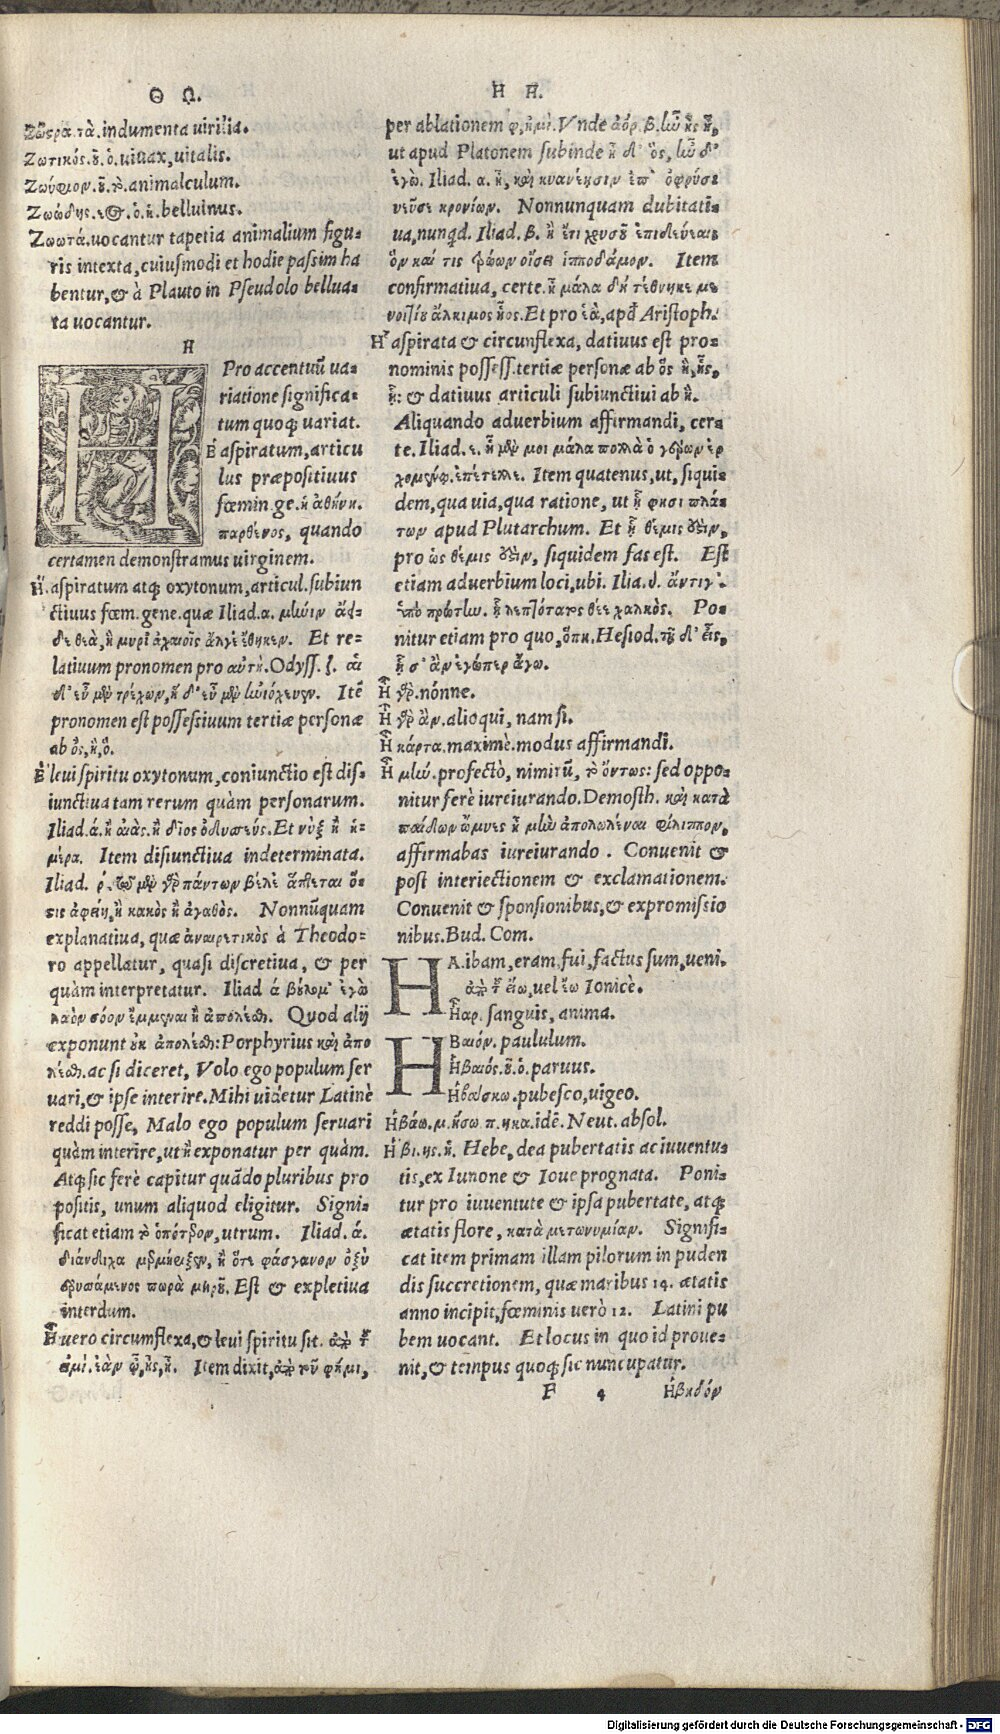 Θ Ω.
Ζωερα.τὰ.indumenta uirilia.
Ζωτικός.ȣ͂.ὁ.uiuax,uitalis.
Ζωύφιον.ȣ.τὸ.animalculum.
Ζωώδης.εος.ὁ.ἡ.belluinus.
Ζωωτά.uocantur tapetia animalium figu-
ris intexta,cuiusmodi et hodie passim ha
bentur,& à Plauto in Pseudolo bellua-
ta uocantur.
H
H Pro accentuũ ua-
riatione significa-
tum quoq; uariat.
Ἡ aspiratum,articu
lus præpositiuus
fœmin.ge.ἡ ἀθήνη.
παρθένος, quando
certamen demonstramus uirginem.
Ἥ.aspiratum atq; oxytonum,articul.subiun
ctiuus fœm.gene.quæ Iliad.α. μῆνιν ἄει-
δε θεὰ,ἣ μυρί ἀχαιοῖς ἄλγε ἔθηκεν. Et re-
latiuum pronomen pro αὐτή.Odyss.ζ. αἱ
δ' εὖ μὲν τρέχον,ἣ δ' εὖ μὲν ἡνιόχευεν. Itẽ
pronomen est possessiuum tertiæ personæ
ab ὅς,ἥ,ὅ.
Ἢ leui spiritu oxytonum,coniunctio est dis-
iunctiua tam rerum quàm personarum.
Iliad.ά.ἢ αἴας.ἢ δῖος ὀδυσσεύς.Et νὺξ ἢ ἡ-
μέρα. Item disiunctiua indeterminata.
Iliad. ρ. τῶν μὲν γὰρ πάντων βέλε ἅπτεται ὅσ-
τις ἀφείη,ἢ κακὸς ἢ ἀγαθὸς. Nonnũquam
explanatiua, quæ ἀναιρετικὸς à Theodo-
ro appellatur, quasi discretiua, & per
quàm interpretatur. Iliad ά βέλομ' ἐγὼ
λαὸν σόον ἔμμεναι ἢ ἀπολέσθ. Quod alij
exponunt ȣκ ἀπολέσθ:Porphyrius καὶ ἀπο
λέσθ.ac si diceret, Volo ego populum ser
uari,& ipse interire.Mihi uidetur Latinè
reddi posse, Malo ego populum seruari
quàm interire,ut ἢ exponatur per quàm.
Atq; sic ferè capitur quãdo pluribus pro
positis, unum aliquod eligitur. Signi-
ficat etiam τὸ ὁπότερον,utrum. Iliad. ά.
διάνδιχα μερμήριξεν, ἢ ὅτε φάσγανον ὀξὺ
ἐρυσάμενος παρὰ μηρȣ͂. Est & expletiua
interdum.
Ἦ uero circumflexa,& leui spiritu sit. ἀπὸ τȣ͂
εἰμί.ἐὰν ὦ,ῃς,ῃ. Item dixit,ἀπὸ τȣ͂ φημι,
H H.
per ablationem φ,ημι.Vnde ἀόρ.β.ἦν ῆς ῆ,
ut apud Platonem subinde ἦ δ' ὃς, ἦν δ'
ἐγὼ. Iliad. α. ἦ, καὶ κυανέῃσιν ἐπ' ὀφρύσι
νεῦσε κρονίων. Nonnunquam dubitati-
ua,nunqd. Iliad.β. ἢ ἔτι χρυσȣ͂ ἐπιδεύεαι
ὅν καί τις τρώων οἴσει ἱπποδάμον. Item
confirmatiua, certe.ἦ μάλα δὴ τέθνηκε με
νοιτίȣ ἄλκιμος ῆος.Et pro ἐὰ,apd Aristoph.
Ἧ aspirata & circunflexa, datiuus est pro-
nominis possess.tertiæ personæ ab ὅς ἥ,ῆς,
ᾗ: & datiuus articuli subiunctiui ab ἥ.
Aliquando aduerbium affirmandi, cer-
te. Iliad.ε. ἦ μὲν μοι μάλα πολλὰ ὁ γέρων ἐρ
χομένῳ.ἐπέτελλε. Item quatenus,ut,siqui-
dem,qua uia,qua ratione, ut ᾗ φησι πλά-
των apud Plutarchum. Et ᾗ θέμις ὅὲιν,
pro ὡς θέμις ὅὲιν, siquidem fas est. Est
etiam aduerbium loci,ubi. Ilia.υ. ἄντυγ'
ὑπὸ πρώτην. ᾗ λεπτότατος θέε χαλκὸς. Po-
nitur etiam pro quo,ὅπη.Hesiod.τῇ δ' εἶς,
ᾗ σ' ἂν ἐγώπερ ἄγω.
Ἦ γὰρ.nónne.
Ἦ γὰρ ἂν.alioqui, nam si.
Ἦ κάρτα.maximè.modus affirmandi.
Ἦ μὴν.profectò, nimirũ, τὸ ὄντως: sed oppo-
nitur ferè iureiurando.Demosth. καὶ κατὰ
παίδων ὤμνυες ἦ μὴν ἀπολωλέναι φίλιππον,
affirmabas iureiurando . Conuenit &
post interiectionem & exclamationem.
Conuenit & sponsionibus,& expromissio
nibus.Bud. Com.
HA.ibam,eram,fui,factus sum,ueni.
ἀπὸ τȣ͂ εἴω,uel ἔω Ionicè.
Ἦαρ. sanguis, anima.
HΒαιόν. paululum.
Ἡβαιός.ȣ͂.ὁ. paruus.
Ἡβάσκω.pubesco,uigeo.
Ἡβάω.μ.ήσω π.ηκα.idẽ. Neut. absol.
Ἥβη.ης.ἡ. Hebe, dea pubertatis ac iuuentu-
tis,ex Iunone & Ioue prognata. Poni-
tur pro iuuentute & ipsa pubertate, atq;
ætatis flore, κατὰ μετωνυμίαν. Signifi-
cat item primam illam pilorum in puden
dis succretionem, quæ maribus 14. ætatis
anno incipit,fœminis uerò 12. Latini pu
bem uocant. Et locus in quo id proue-
nit,& tempus quoq; sic nuncupatur.
F 4 Ἡβηδόν
Digitalisierung gefördert durch die Deutsche Forschungsgemeinschaft - DFG